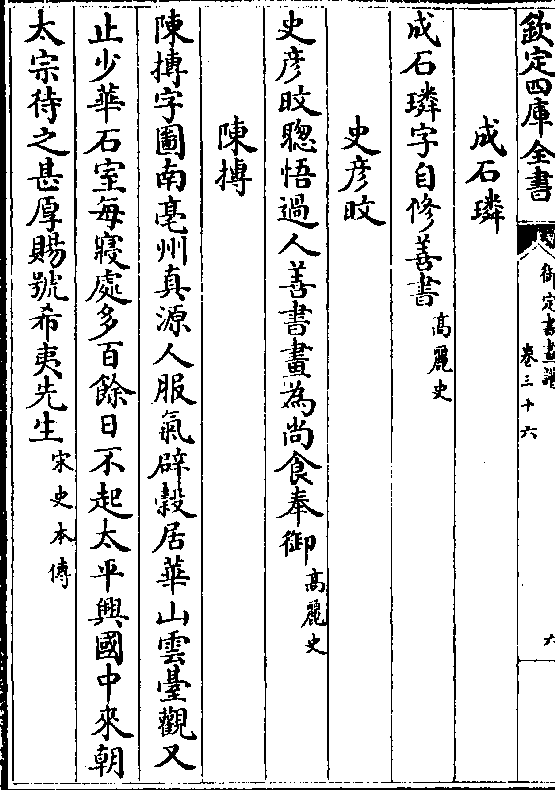 欽定四庫全書
御定書畫譜
卷三十六
六
成石璘
成石璘字自修善書高麗史
史彦旼
史彦旼聰悟過人善書畫為尚食奉御高麗史
陳摶
陳摶字圖南亳州真源人服氣辟穀居華山雲臺觀又
止少華石室每寢處多百餘日不起太平興國中來朝
太宗待之甚厚賜號希夷先生宋史本傳